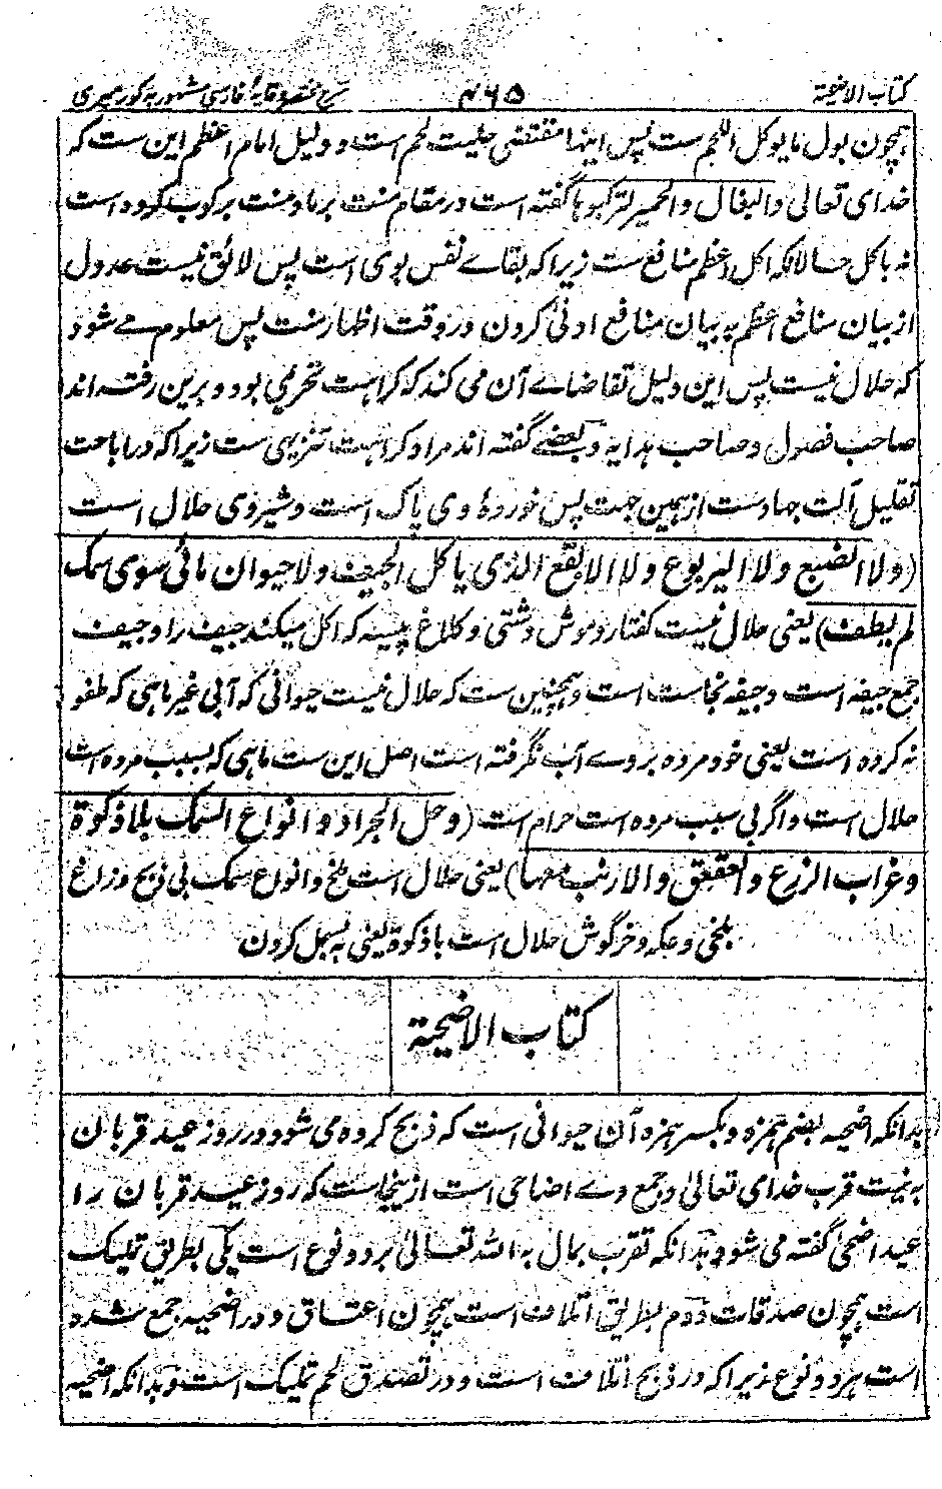 کتاب الاضحیۃ ۴۶۵ شرح مختصر وقایۂ فارسی مشہور بہ کور میری
ہمچون بول ما یوکل اللحم ست پس اینہا مقتضی حلیت لحم است و دلیل امام اعظم این ست کہ
خدای تعالی والبغال والحمیر لترکبوہا گفتہ است در مقام منت بر ما و منت برکوب کردہ است
نہ باکل حالانکہ اکل اعظم منافع ست زیرا کہ بقاے نفس بوی است پس لائق نیست عدول
از بیان منافع اعظم بہ بیان منافع ادنیٰ کردن در وقت اظہار منت پس معلوم مے شود
کہ حلال نیست پس این دلیل تقاضاے آن می کند کہ کراہت تحریمی بود و برین رفتہ اند
صاحب فصول و صاحب ہدایہ و بعضے گفتہ اند مراد کراہت تنزیہی ست زیرا کہ در اباحت
تقلیل آلت جہادست از ہمین جہت پس خوردۂ وی پاک است و شیر وی حلال است
(ولا الضبع ولا الیربوع ولا الابقع الذی یاکل الجیف ولا حیوان مائی سوی سمک
لم یطف) یعنی حلال نیست کفتار و موش دشتی و کلاغ پیسہ کہ اکل میکند جیف را و جیف
جمع جیفہ است و جیفہ نجاست است و ہمچنین ست کہ حلال نیست حیوانی کہ آبی غیر ماہی کہ طفو
نہ کردہ است یعنی خود مردہ بروے آب نگرفتہ است اصل این ست ماہی کہ بسبب مردہ است
حلال است و اگر بی سبب مردہ است حرام است (وحل الجراد و انواع السمک بلا ذکوۃ
وغراب الزرع والعقعق والارنب معہا) یعنی حلال است ملخ و انواع سمک بی ذبح و زاغ
بلخی و عکہ و خرگوش حلال است با ذکوۃ یعنی بہ بسمل کردن
کتاب الاضحیۃ
بدانکہ اضحیہ بضم ہمزہ و بکسر ہمزہ آن حیوانی است کہ ذبح کردہ می شود در روز عید قربان
بہ نیت قرب خدای تعالیٰ و جمع وے اضاحی است ازینجاست کہ روز عید قربان را
عید اضحیٰ گفتہ می شود بدانکہ تقرب بمال بہ اللہ تعالیٰ بر دو نوع است یکی بطریق تملیک
است ہمچون صدقات دوم بطریق اتلاف است ہمچون اعتاق و در اضحیہ جمع شدہ
است ہر دو نوع زیرا کہ در ذبح اتلاف است و در تصدق لحم تملیک است و بدانکہ اضحیہ